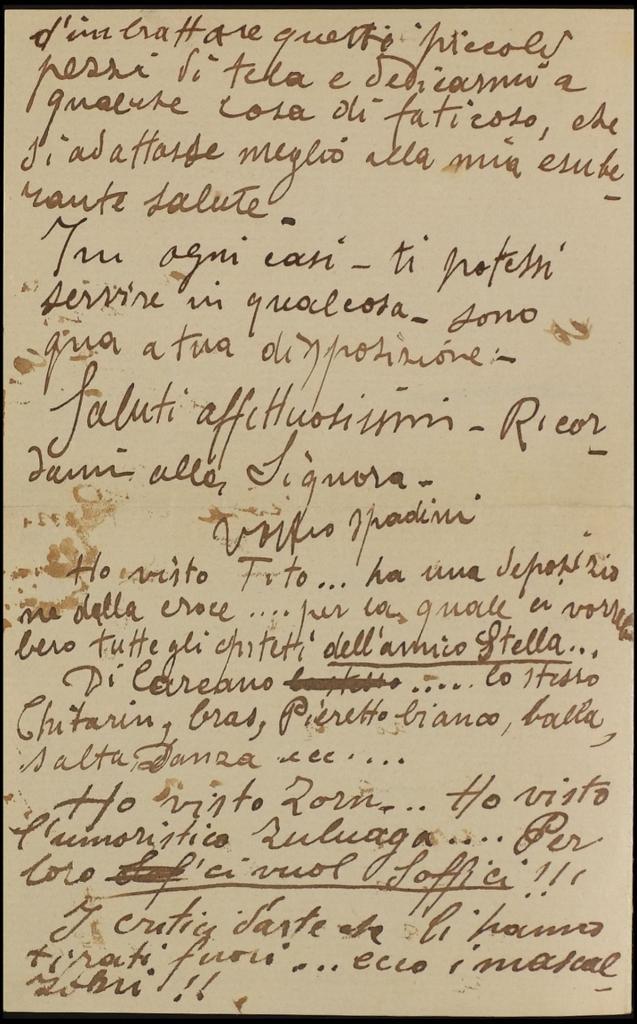 d'imbrattare questi piccoli
pezzi di tela e dedicarmi a
qualche cosa di faticoso, che
si adattasse meglio alla mia esube-
rante salute-
In ogni casi - ti potessi
servire in qualcosa - sono
qua a tua disposizione -
Saluti affettuosissimi - Ricor-
dami alla Signora -
Vostro Spadini
Ho visto Tito... ha una deposizio
ne dalla croce .... per la quale ci vorreb
bero tutte gli epiteti dell'amico Stella...
Di Carcano ..... lo stesso
Chitarin, Bras, Pieretto bianco, balla,
salta, Danza ecc ....
Ho visto Zorn... Ho visto
l'umoristico Zuluaga .... Per
loro ci vuol Soffici!!!
I critici d'arte che li hanno
tirati fuori ... ecco i mascal
zoni!!